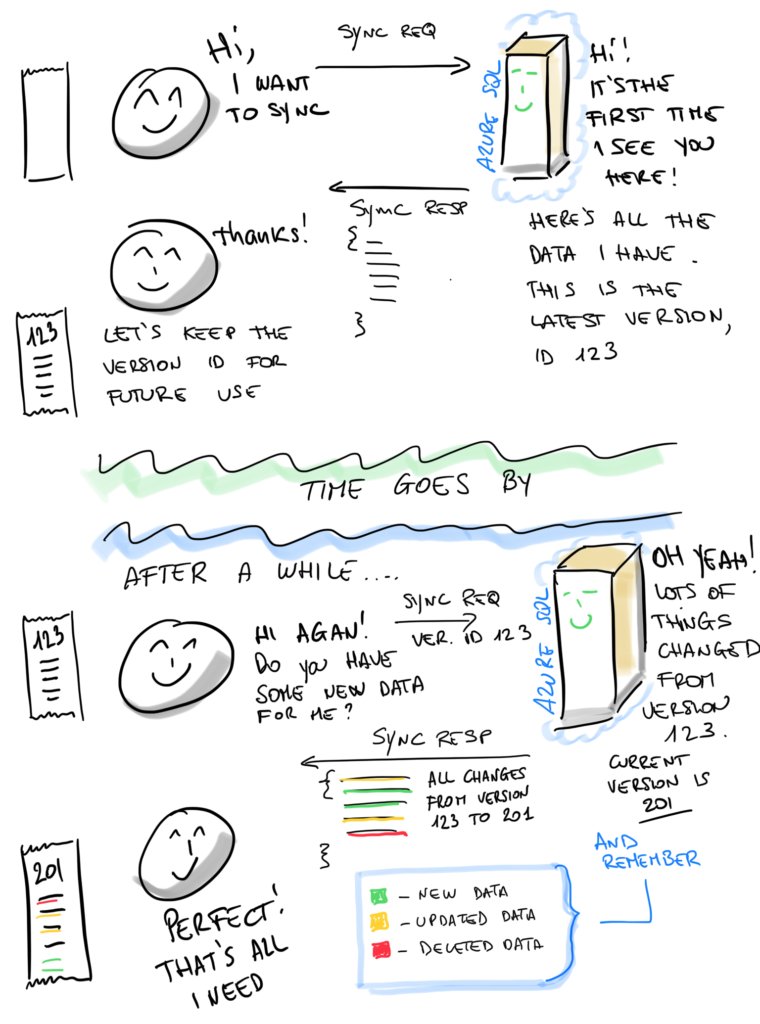 Hi,
I WANT
TO SYNC
SYNC REQ
AZURE SQL
Hi!
IT'S THE
FIRST TIME
I SEE YOU
HERE!
SYNC RESP
{
}
HERE'S ALL THE
DATA I HAVE.
THIS IS THE
LATEST VERSION,
ID 123
thanks!
123
LET'S KEEP THE
VERSION ID FOR
FUTURE USE
TIME GOES BY
AFTER A WHILE....
123
HI AGAN!
DO YOU HAVE
SOME NEW DATA
FOR ME?
SYNC REQ
VER. ID 123
AZURE SQL
OH YEAH!
LOTS OF
THINGS
CHANGED
FROM
VERSION
123.
CURRENT
VERSION IS
201
SYNC RESP
{
ALL CHANGES
FROM VERSION
123 TO 201
}
201
PERFECT!
THAT'S ALL
I NEED
AND
REMEMBER
- NEW DATA
- UPDATED DATA
- DELETED DATA